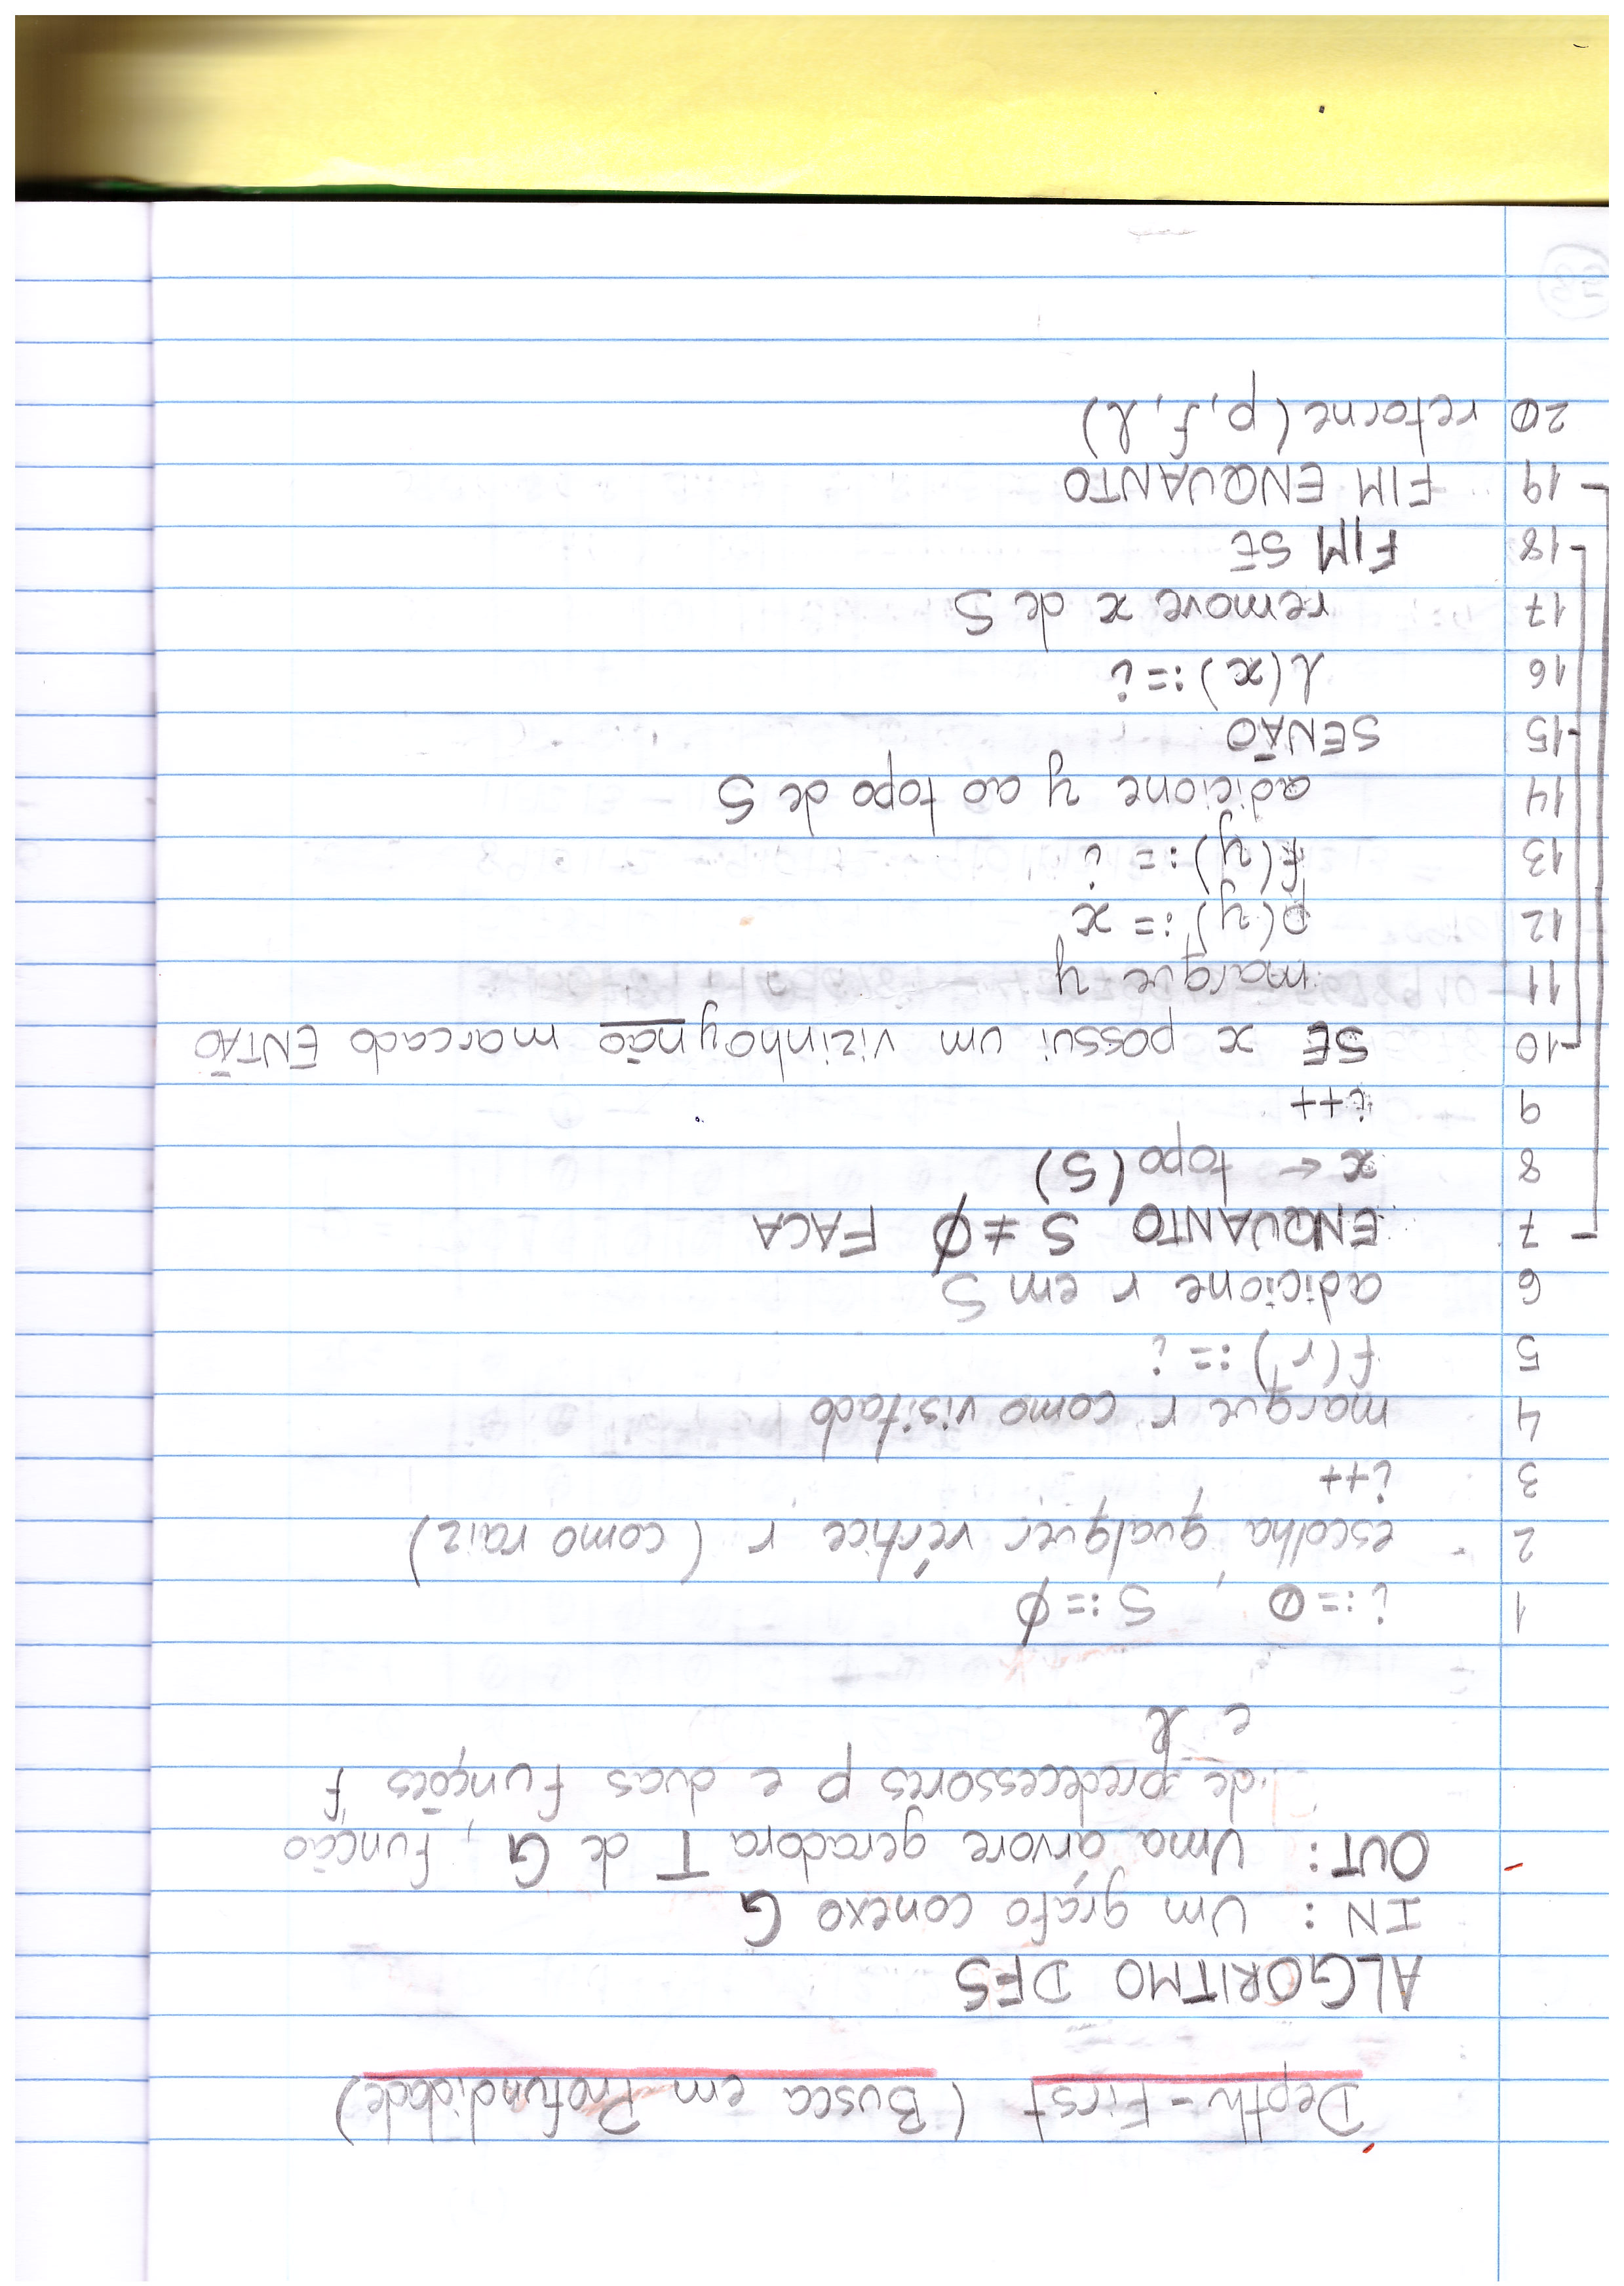 Depth-First (Busca em Profundidade)
ALGORITMO DFS
IN: Um grafo conexo G
OUT: Uma árvore geradora T de G, função
de predecessores p e duas funções f
e l
1 i:=0, S:=∅
2 escolha qualquer vértice r (como raiz)
3 i++
4 marque r como visitado
5 f(r):=i
6 adicione r em S
7 ENQUANTO S≠∅ FACA
8 x ← topo(S)
9 i++
10 SE x possui um vizinho y não marcado ENTÃO
11 marque y
12 p(y):=x
13 f(y):=i
14 adicione y ao topo de S
15 SENÃO
16 l(x):=i
17 remove x de S
18 FIM SE
19 FIM ENQUANTO
20 retorne(p,f,l)